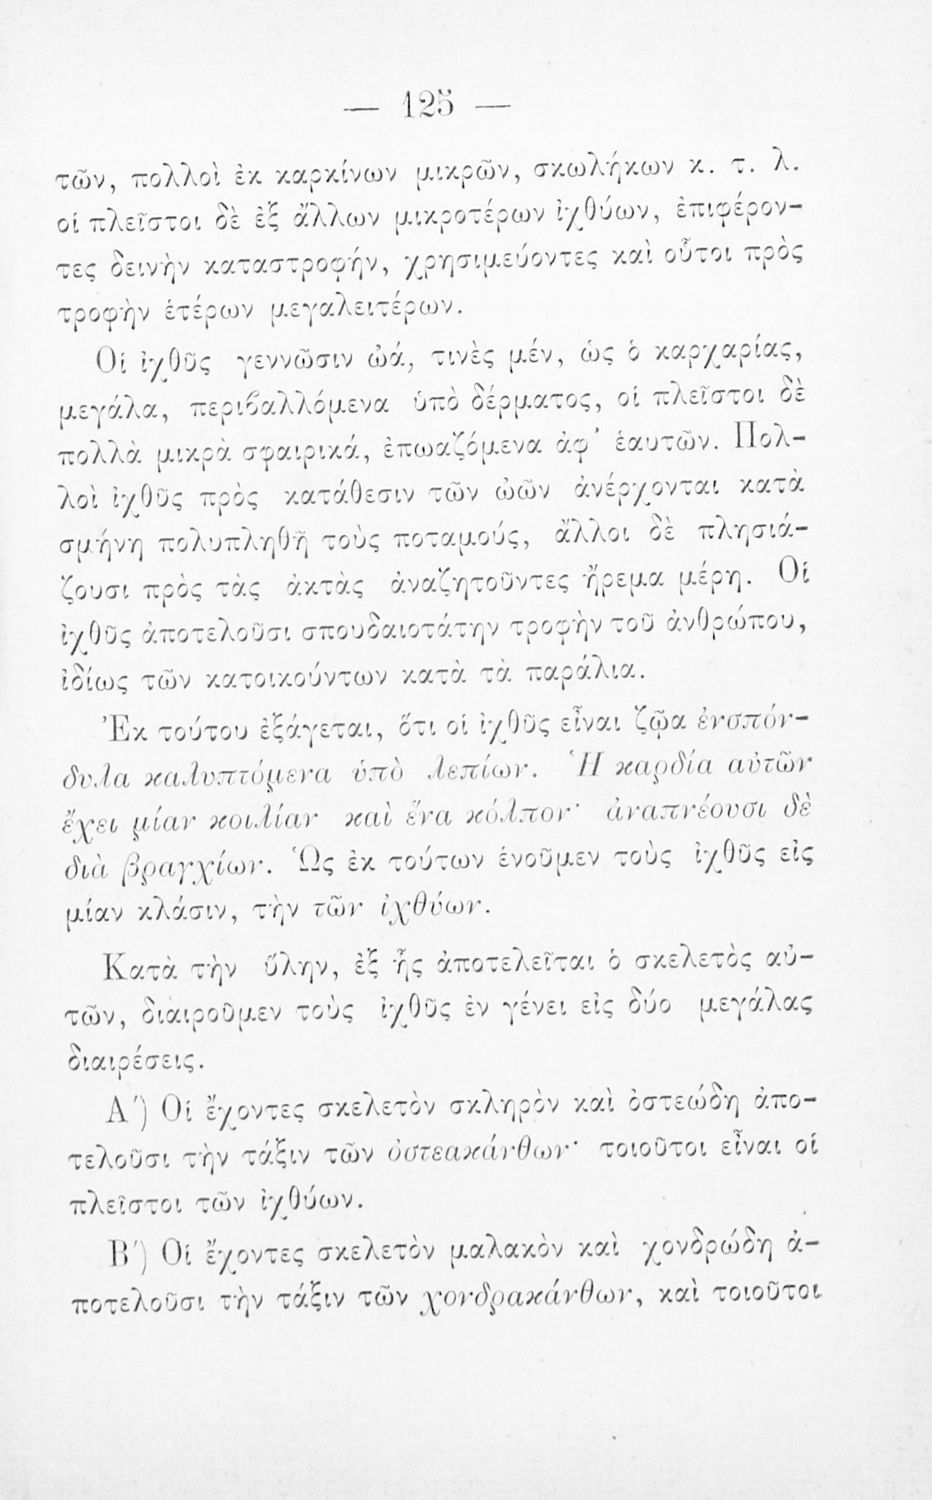 — 125 —
τῶν, πολλοὶ ἐκ καρκίνων μικρῶν, σκωλήκων κ. τ. λ.
οἱ πλεῖστοι δὲ ἐξ ἄλλων μικροτέρων ἰχθύων, ἐπιφέρον-
τες δεινὴν καταστροφήν, χρησιμεύοντες καὶ οὗτοι πρὸς
τροφὴν ἑτέρων μεγαλειτέρων.
Οἱ ἰχθῦς γεννῶσιν ὠά, τινὲς μέν, ὡς ὁ καρχαρίας,
μεγάλα, περιβαλλόμενα ὑπὸ δέρματος, οἱ πλεῖστοι δὲ
πολλὰ μικρὰ σφαιρικά, ἐπωαζόμενα ἀφ' ἑαυτῶν. Πολ-
λοὶ ἰχθῦς πρὸς κατάθεσιν τῶν ὠῶν ἀνέρχονται κατὰ
σμήνη πολυπληθῆ τοὺς ποταμούς, ἄλλοι δὲ πλησιά-
ζουσι πρὸς τὰς ἀκτὰς ἀναζητοῦντες ἤρεμα μέρη. Οἱ
ἰχθῦς ἀποτελοῦσι σπουδαιοτάτην τροφὴν τοῦ ἀνθρώπου,
ἰδίως τῶν κατοικούντων κατὰ τὰ παράλια.
Ἐκ τούτου ἐξάγεται, ὅτι οἱ ἰχθῦς εἶναι ζῷα ἐνσπόν-
δυλα καλυπτόμενα ὑπὸ λεπίων. Ἡ καρδία αὐτῶν
ἔχει μίαν κοιλίαν καὶ ἕνα κόλπον· ἀναπνέουσι δὲ
διὰ βραγχίων. Ὡς ἐκ τούτων ἑνοῦμεν τοὺς ἰχθῦς εἰς
μίαν κλάσιν, τὴν τῶν ἰχθύων.
Κατὰ τὴν ὕλην, ἐξ ἧς ἀποτελεῖται ὁ σκελετὸς αὐ-
τῶν, διαιροῦμεν τοὺς ἰχθῦς ἐν γένει εἰς δύο μεγάλας
διαιρέσεις.
Α΄) Οἱ ἔχοντες σκελετὸν σκληρὸν καὶ ὀστεώδη ἀπο-
τελοῦσι τὴν τάξιν τῶν ὀστεακάνθων· τοιοῦτοι εἶναι οἱ
πλεῖστοι τῶν ἰχθύων.
Β΄) Οἱ ἔχοντες σκελετὸν μαλακὸν καὶ χονδρώδη ἀ-
ποτελοῦσι τὴν τάξιν τῶν χονδρακάνθων, καὶ τοιοῦτοι